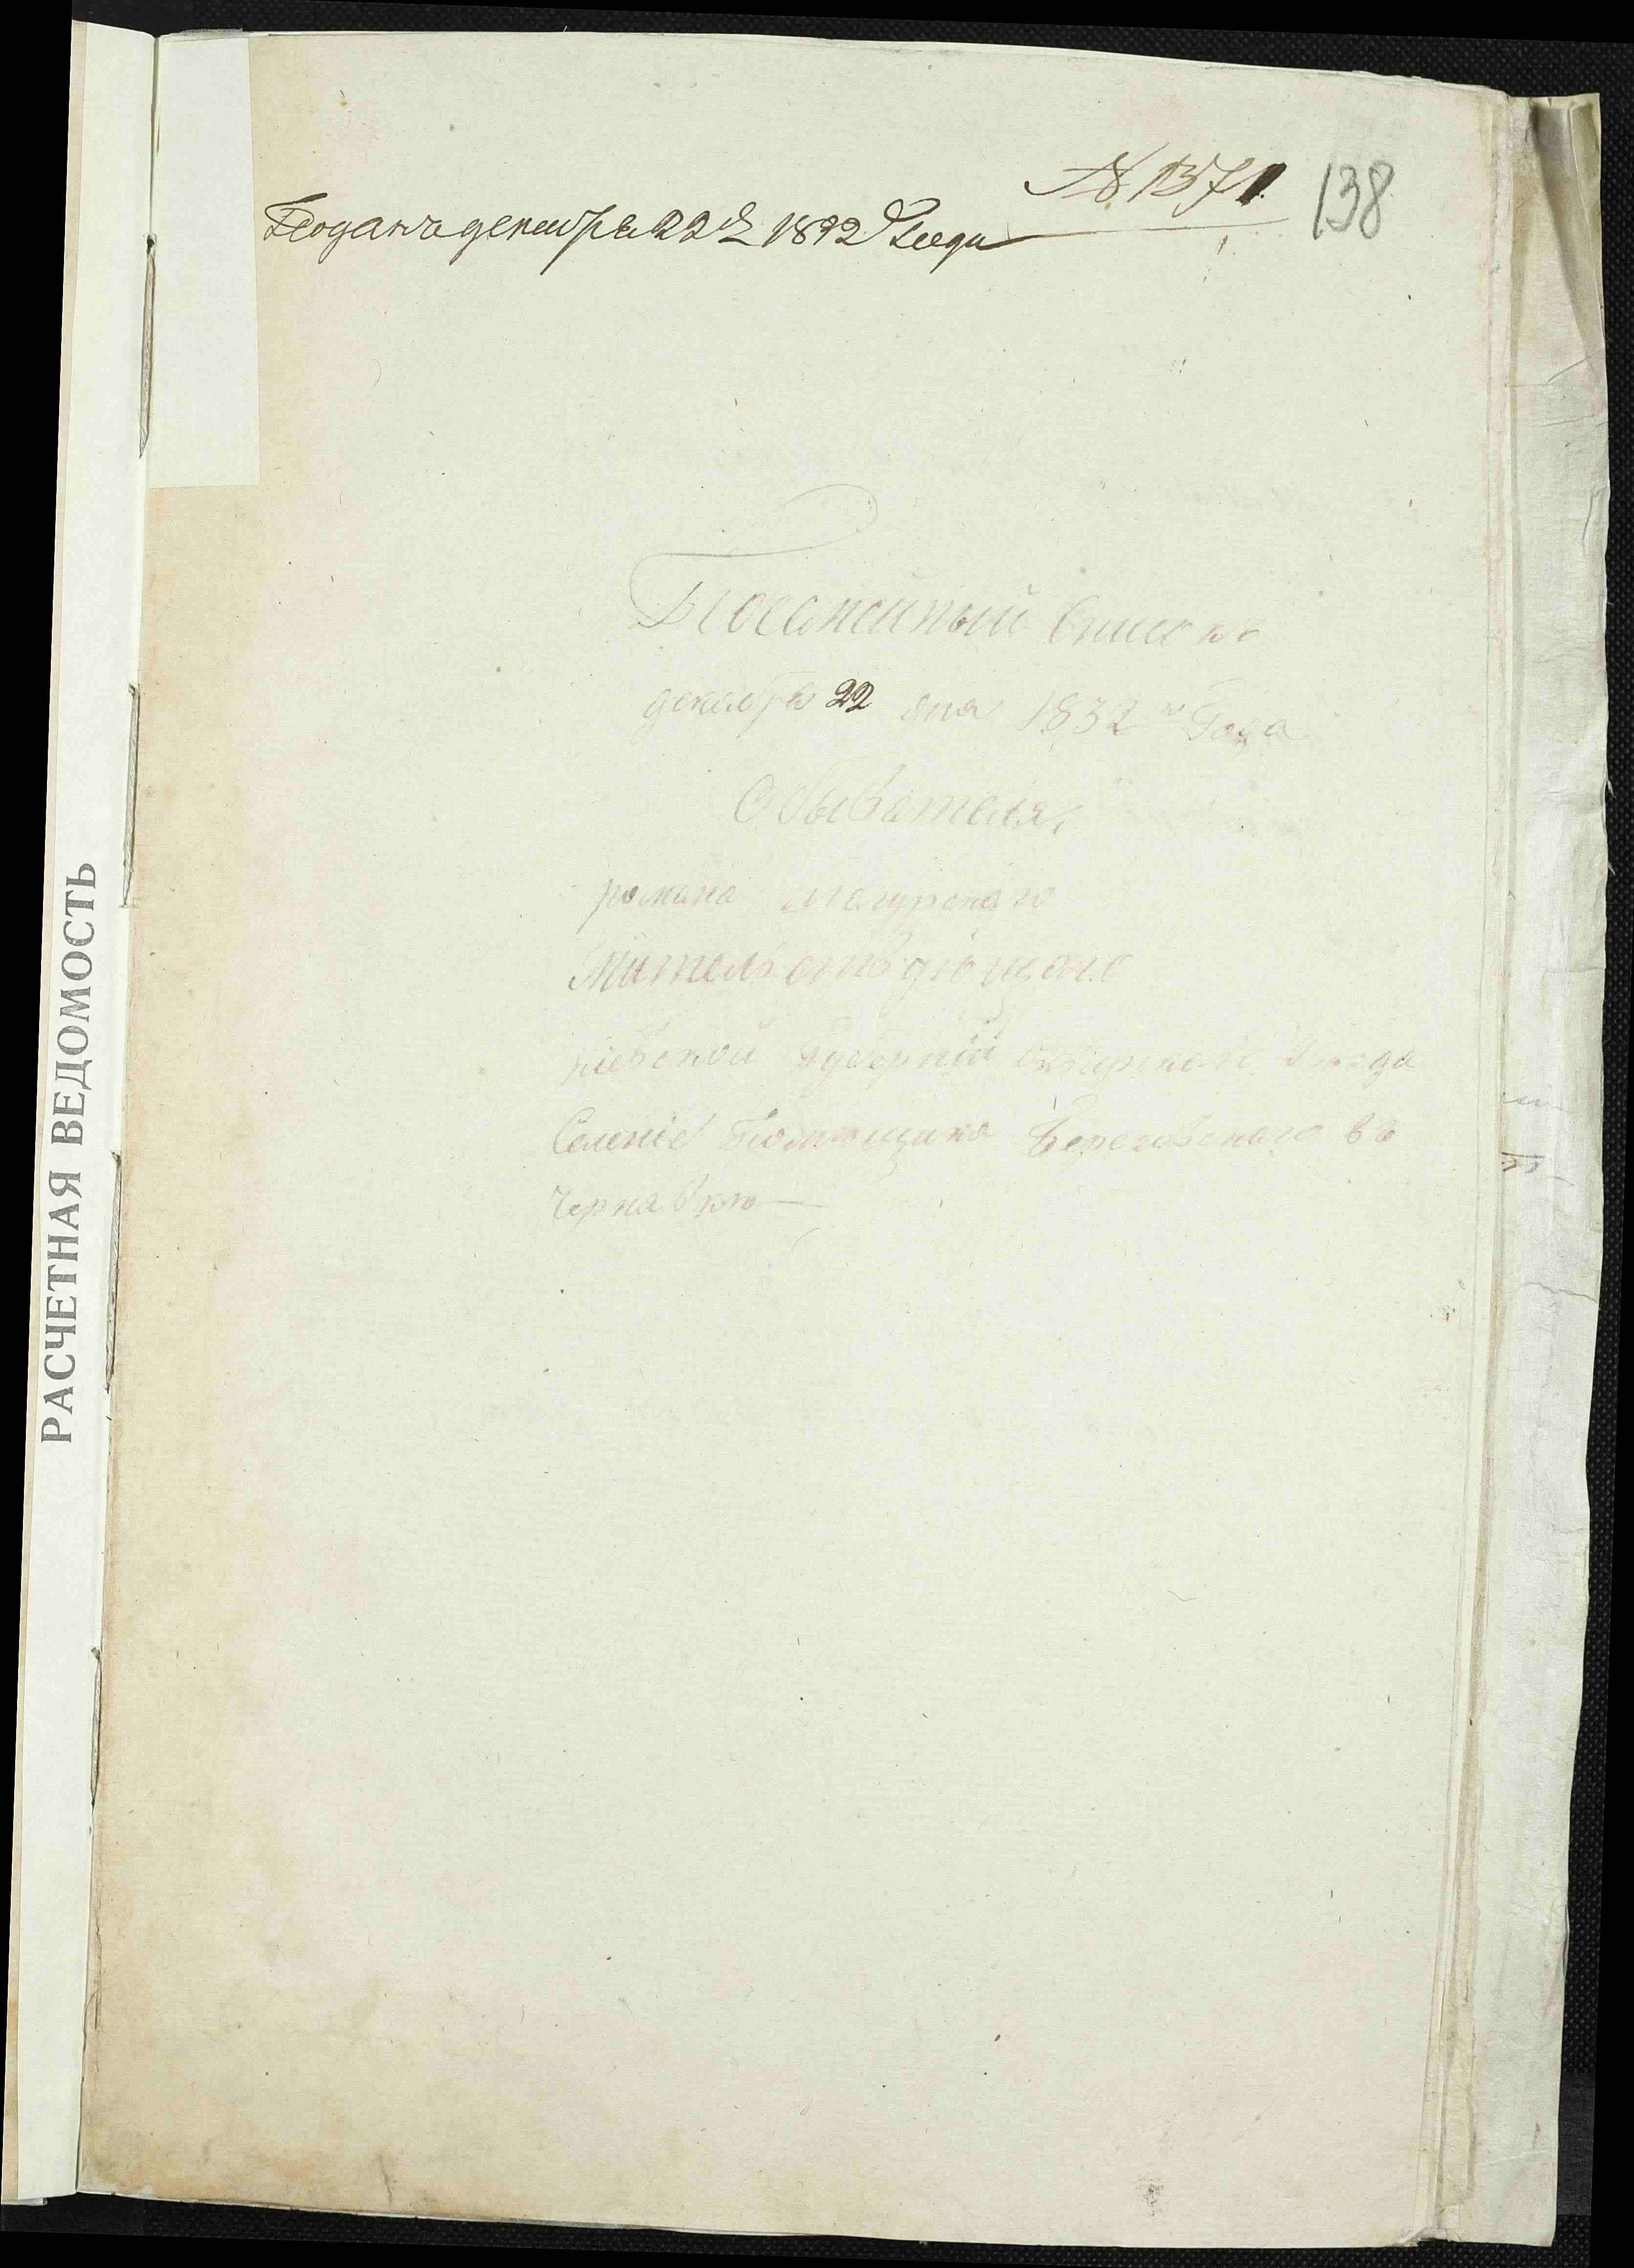 № 1371.
138
Поданъ декабря 22 д 1832 Года
Посемейный Списокъ
декабря 22 дня 1832го Года
Обывателя,
романа Магурскаго
Жительствующаго
Кіевской Губерніи Сквирскаго уезда
Селеніе Помещика Березовскаго въ
Чернавкю
РАСЧЕТНАЯ ВЕДОМОСТЬ